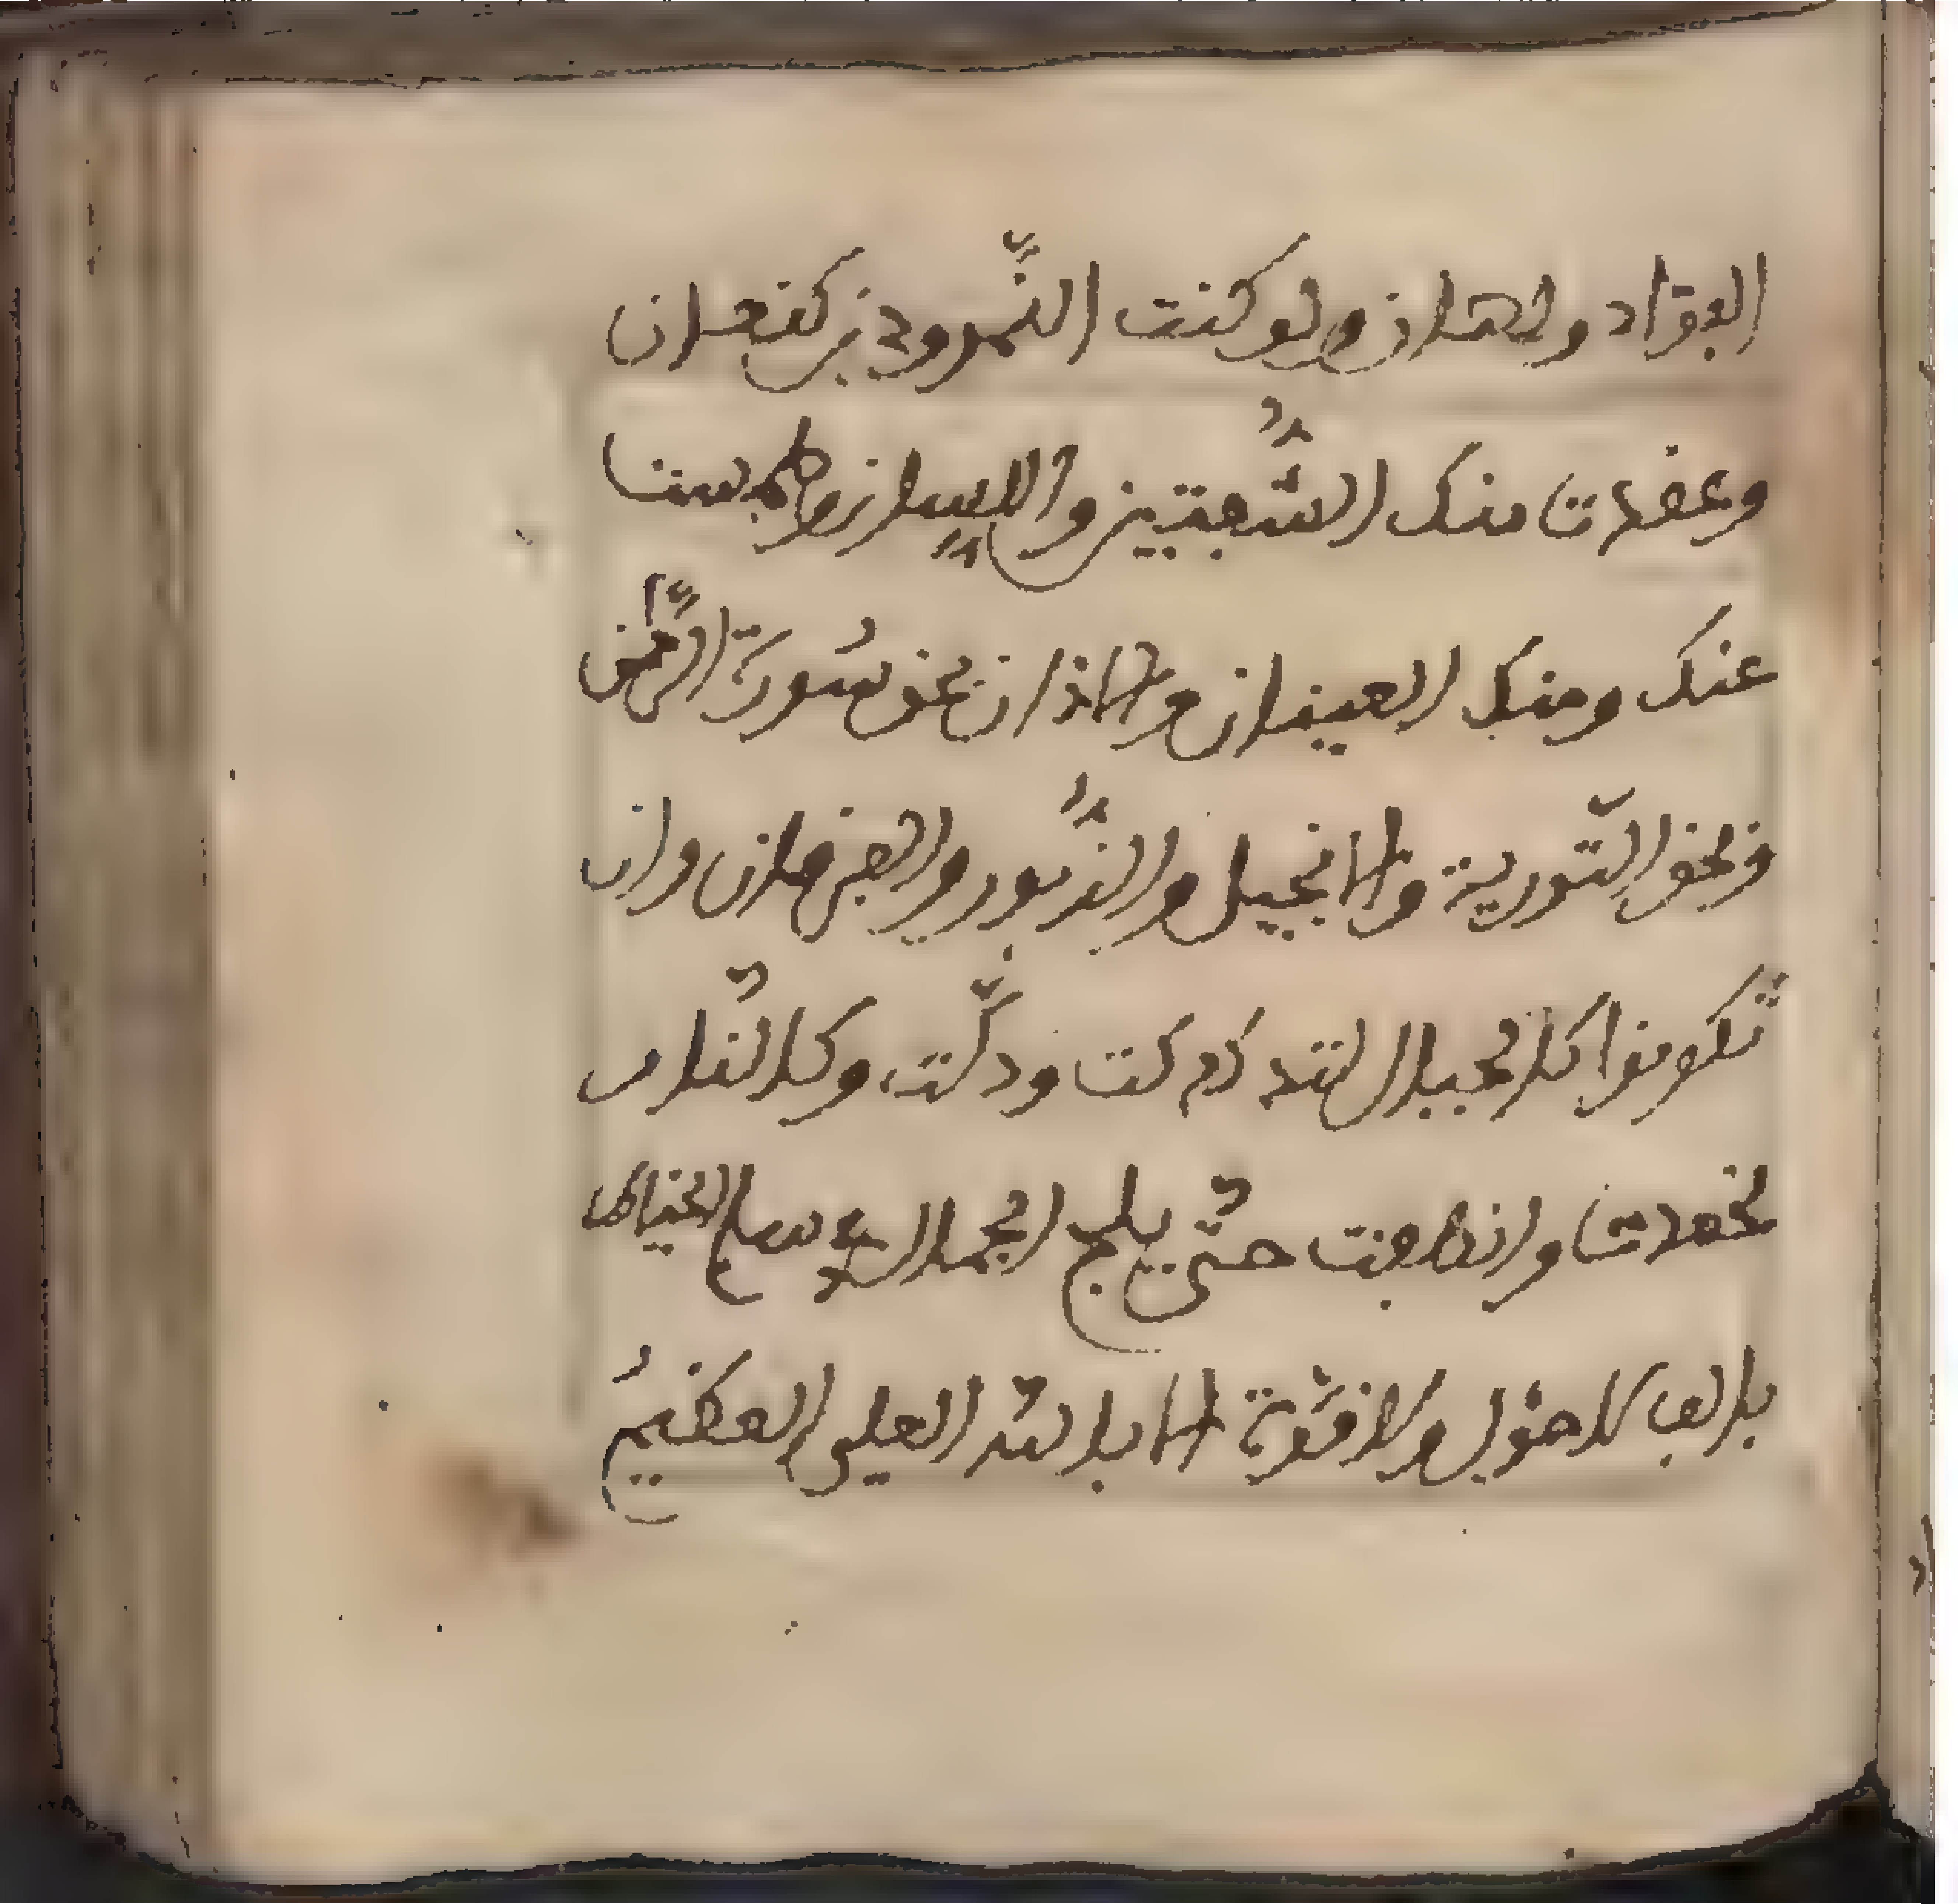 الفؤاد ولهان ولو كنت النّمرود بن كنعان
وعقدت منك الشّفتين واللسان وطمست
عنك ومنك العينان والاذان بحق سُورة الرّحمن
وبحق التّورية والانجيل والزّبور والفرفان وان
تكونوا كالجبال لتدكدكت ودكّت وكالنّار
لخمدت وانطفت حتّى يلج الجمل في سم الخياط
بالف لا حول ولا قوّة الا بالله العلي العظيمُ